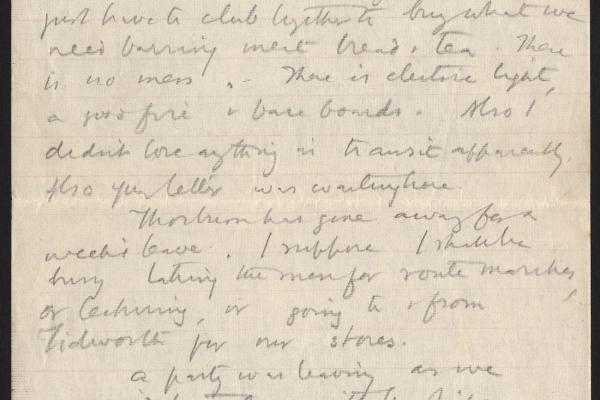 just have to club together to buy what we
need barring meat bread & tea. There
is no mess. - There is electric light,
a good fire & bare boards. Also I
didn't lose anything in transit apparently.
Also your letter was waiting here.
Thorburn has gone away for a
week's leave. I suppose I shall be
busy taking the men for route marches,
or lecturing, or going to & from
Tidworth for our stores.
A party was leaving as we